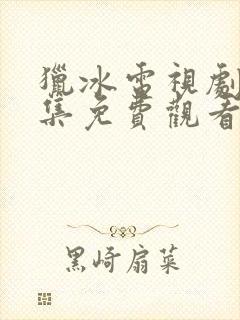 獵冰電視劇
集免費觀看
黑崎扇菜